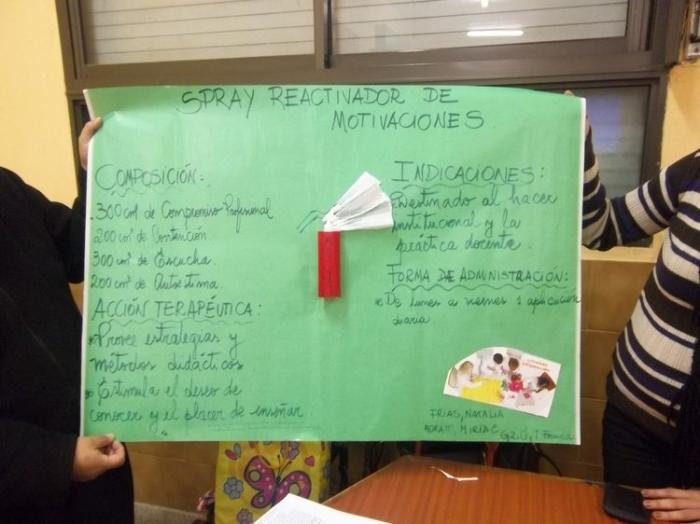 SPRAY REACTIVADOR DE
MOTIVACIONES.
COMPOSICIÓN:
300 cm³ de Compromiso Profesional
200 cm³ de Contención.
300 cm³ de Escucha.
200 cm³ de Autoestima.
ACCIÓN TERAPÉUTICA:
Provee estrategias y
métodos didácticos
Estimula el deseo de
conocer y el placer de enseñar
INDICACIONES:
Destinado al hacer
institucional y la
práctica docente.
FORMA DE ADMINISTRACIÓN:
De lunes a viernes 1 aplicación
diaria
FRÍAS, NATALIA